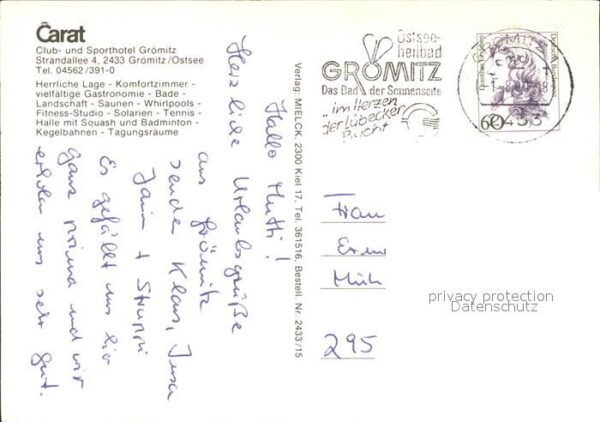 Carat
Club- und Sporthotel Grömitz
Strandallee 4, 2433 Grömitz/Ostsee
Tel. 04562/391-0
Herrliche Lage - Komfortzimmer -
vielfältige Gastronomie - Bade -
Landschaft - Saunen - Whirlpools -
Fitness-Studio - Solarien - Tennis -
Halle mit Squash und Badminton -
Kegelbahnen - Tagungsräume
Hallo Mutti!
Herzliche Urlaubsgrüße
aus Grömitz
sende Klaus,
+ Struppi
Es gefällt uns hier
ganz prima und wir
erholen uns sehr gut.
Verlag: MIELCK, 2300 Kiel 17, Tel. 361516, Bestell. Nr. 2433/15
Ostsee-
heilbad
GRÖMITZ
Das Bad der Sonnenseite
„im Herzen
der Lübecker
Bucht
GRÖMITZ
2433
60
Frau
295
privacy protection
Datenschutz